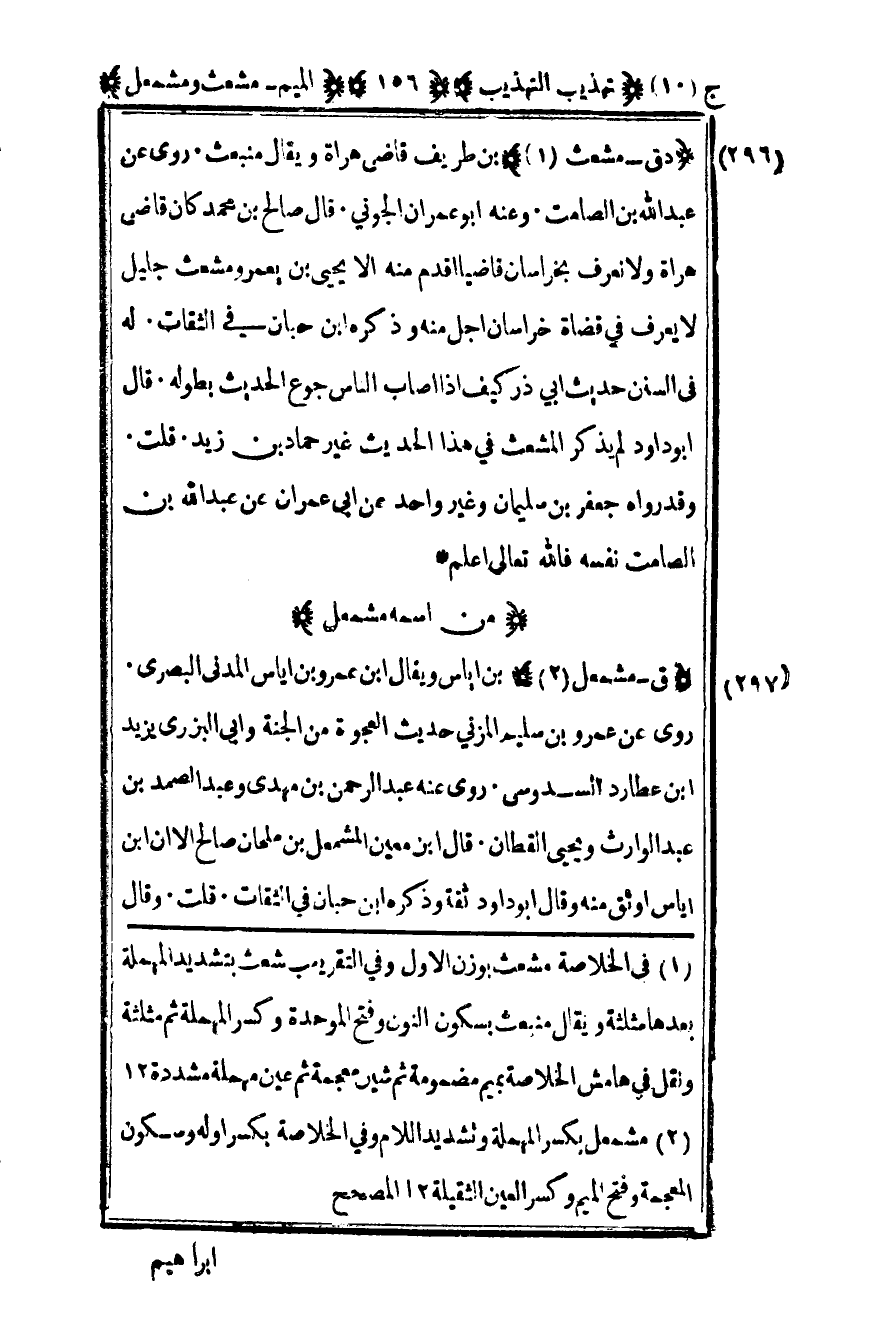 ج (١٠) ﴿ تهذيب التهذيب ﴾ ﴿ ١٥٦ ﴾ ﴿ الميم - مشعث ومشمعل ﴾
(٢٩٦) ﴿ دق - مشعث (١) ﴾ بن طريف قاضى هراة ويقال منبعث ٠ روى عن
عبد الله بن الصامت ٠ وعنه ابو عمران الجوني ٠ قال صالح بن محمد كان قاضى
هراة ولا نعرف بخراسان قاضيا اقدم منه الا يحيى بن يعمر ومشعث جليل
لا يعرف في قضاة خراسان اجل منه و ذكره ابن حبان في الثقات ٠ له
فى السنن حديث ابي ذر كيف اذا اصاب الناس جوع الحديث بطوله ٠ قال
ابوداود لم يذكر المشعث في هذا الحديث غير حماد بن زيد ٠ قلت ٠
وقد رواه جعفر بن سليمان وغير واحد عن ابى عمران عن عبد الله بن
الصامت نفسه فالله تعالى اعلم *
﴿ من اسمه مشمعل ﴾
(٢٩٧) ﴿ ق - مشمعل (٢) ﴾ بن اياس ويقال ابن عمرو بن اياس المدنى البصرى ٠
روى عن عمرو بن سليم المزني حديث العجوة من الجنة وابى البزرى يزيد
ابن عطارد السدوسى ٠ روى عنه عبد الرحمن بن مهدى وعبد الصمد بن
عبد الوارث ويحيى القطان ٠ قال ابن معين المشمعل بن ملحان صالح الا ان ابن
اياس اوثق منه وقال ابوداود ثقة وذكره ابن حبان في الثقات ٠ قلت ٠ وقال
(١) فى الخلاصة مشعث بوزن الاول وفي التقريب شعث بتشديد المهملة
بعدها مثلثة ويقال منبعث بسكون النون وفتح الموحدة وكسر المهملة ثم مثلثة
ونقل في هامش الخلاصة بميم مضمومة ثم شين معجمة ثم عين مهملة مشددة ١٢
(٢) مشمعل بكسر المهملة وتشديد اللام وفي الخلاصة بكسر اوله وسكون
المعجمة وفتح الميم وكسر العين الثقيلة ١٢ المصحح
ابراهيم